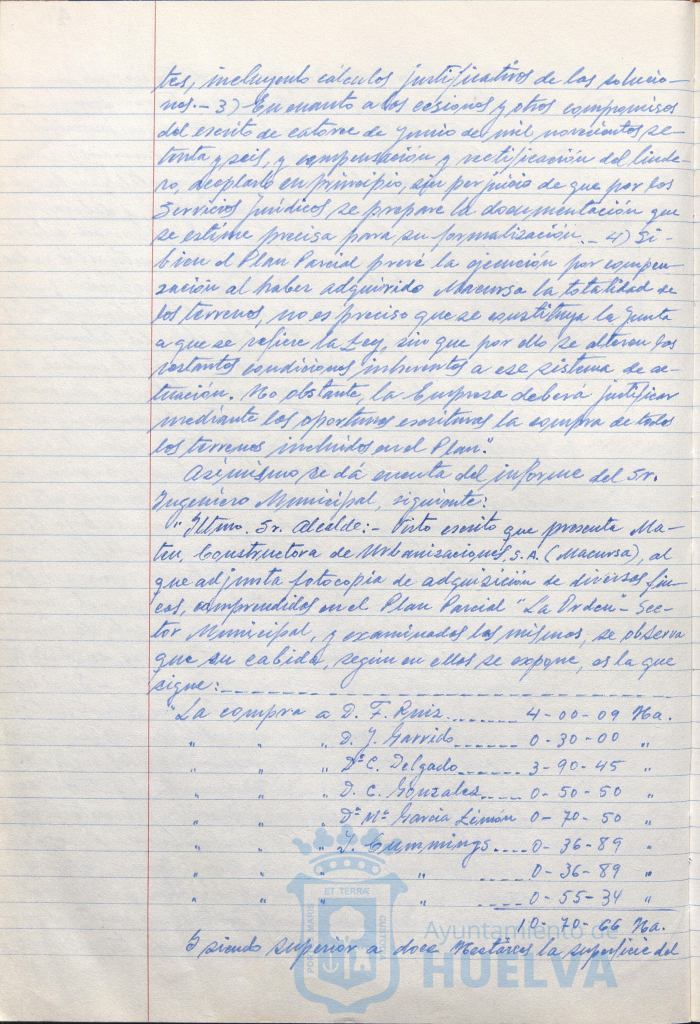 tes, incluyendo cálculos justificativos de las solucio-
nes.- 3) En cuanto a las cesiones y otros compromisos
del escrito de catorce de Junio de mil novecientos se-
tenta y seis, y compensación y rectificación del linde-
ro, aceptarlo en principio, sin perjuicio de que por los
Servicios Jurídicos se prepare la documentación que
se estime precisa para su formalización.- 4) Si
bien el Plan Parcial prevé la ejecución por compen-
sación al haber adquirido Macursa la totalidad de
los terrenos, no es preciso que se constituya la Junta
a que se refiere la Ley, sin que por ello se alteren las
restantes condiciones inherentes a ese sistema de ac-
tuación. No obstante, la Empresa deberá justificar
mediante las oportunas escrituras la compra de todos
los terrenos incluidos en el Plan".
Asimismo se dá cuenta del informe del Sr.
Ingeniero Municipal, siguiente:
"Iltmo. Sr. Alcalde:- Visto escrito que presenta Ma-
teu, Constructora de Urbanizaciones, S.A. (Macursa), al
que adjunta fotocopia de adquisición de diversas fin-
cas, comprendidas en el Plan Parcial "La Orden"- Sec-
tor Municipal, y examinados los mismos, se observa
que su cabida, según en ellos se expone, es la que
sigue:
"La compra a D. F. Ruiz....... 4-00-09 Ha.
" " " D. J. Garrido....... 0-30-00 "
" " " Dª C. Delgado....... 3-90-45 "
" " " D. C. Gonzalez..... 0-50-50 "
" " " Dª Mª García Limón 0-70-50 "
" " " J. Cummings.... 0-36-89 "
" " " " .... 0-36-89 "
" " " " .... 0-55-34 "
10-70-66 Ha.
Y siendo superior a doce Hectáreas la superficie del
PORTUS MARIS ET TERRAE CUSTODIA
Ayuntamiento de
HUELVA